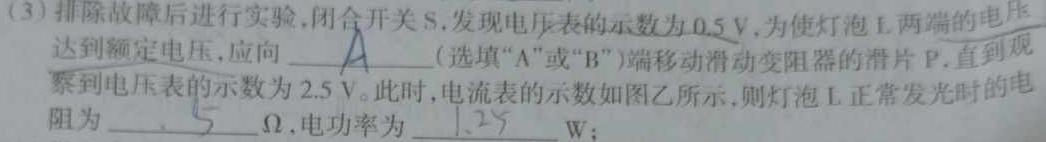 (3)排除故障后进行实验,闭合开关S,发现电压表的示数为0.5 V,为使灯泡L两端的电压
达到额定电压,应向 A (选填“A”或“B”)端移动滑动变阻器的滑片P,直到观
察到电压表的示数为2.5 V。此时,电流表的示数如图乙所示,则灯泡L正常发光时的电
阻为 5 Ω,电功率为 1.25 W;